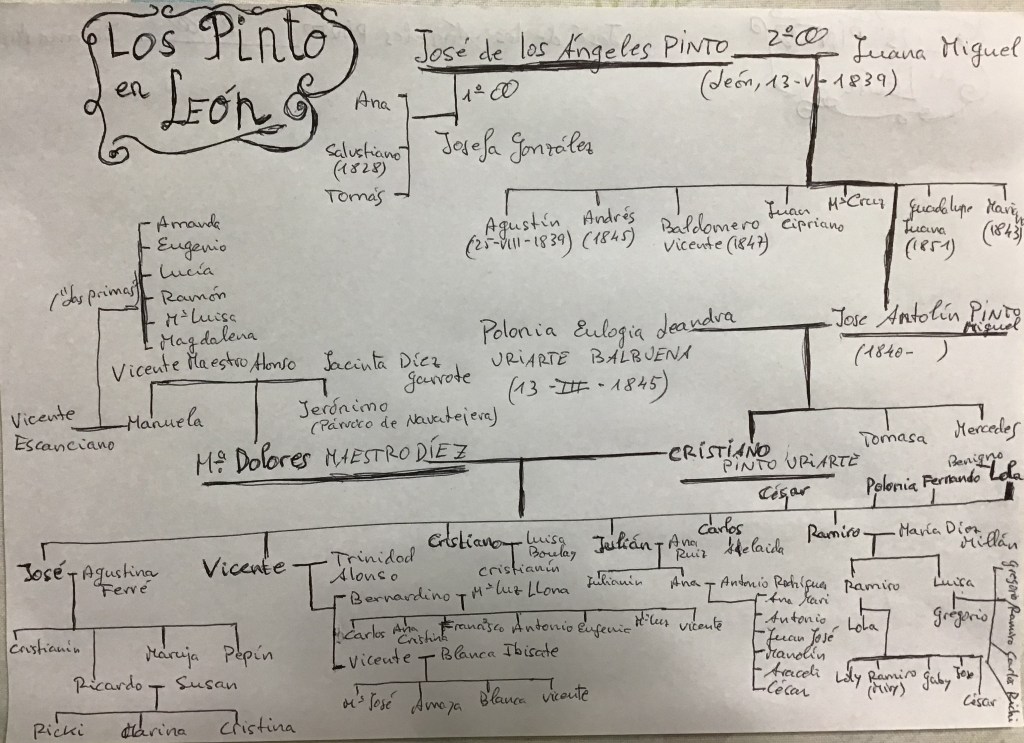 Los Pinto
en
León
José de los Ángeles PINTO
2º
Juana Miguel
(León, 13-V-1839)
1º
Ana
Salustiano
(1828)
Tomás
Josefa González
Agustín
(25-VIII-1839)
Andrés
(1845)
Baldomero
Vicente (1847)
Juan
Cipriano
Mª Cruz
Guadalupe
Juana
(1851)
(1843)
Amanda
Eugenio
Lucía
Ramón
Mª Luisa
Magdalena
("Las primas")
Polonia Eulogia Leandra
URIARTE BALBUENA
(13-III-1845)
José Antolín PINTO
Miguel
(1840- )
Vicente Maestro Alonso
Jacinta Díez
Garrote
Vicente
Escanciano
Manuela
Jerónimo
(Párroco de Navatejera)
Tomasa
Mercedes
Mª Dolores MAESTRO DÍEZ
CRISTIANO
PINTO URIARTE
César
Polonia
Fernando
Benigno
Lola
José
Agustina
Ferré
Vicente
Trinidad
Alonso
Cristiano
Luisa
Cristianín
Julián
Ana
Ruiz
Carlos
Adelaida
Ramiro
María Díez
Millán
Julianín
Ana
Antonio Rodríguez
Ramiro
Luisa
Bernardino
Mª Luz Llona
Ana Mari
Antonio
Juan José
Manolín
Araceli
César
Lola
Gregorio
Gregorio Ramiro Carla Richi
Carlos
Ana
Cristina
Francisco
Antonio
Eugenio
Mª Luz
Vicente
Cristianín
Maruja
Pepín
Vicente
Blanca Ibisate
Loly
Ramiro
Gaby
José
César
Ricardo
Susan
Mª José
Amaya
Blanca
Vicente
Ricki
Marina
Cristina